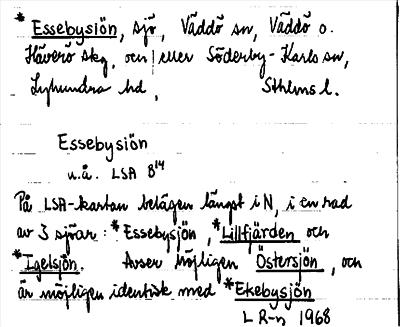 * Essebysjön, sjö, Väddö sn, Väddö o.
Häverö skg, och/eller Söderby-Karls sn,
Lyhundra hd, Sthlms l.
Essebysiön
u.å. LSA 8¹⁴
På LSA-kartan belägen längst i N, i en rad
av 3 sjöar: *Essebysjön, *Lillfjärden och
*Igelsjön. Avser möjligen Östersjön, och
är möjligen identisk med *Ekebysjön
L R-n 1968